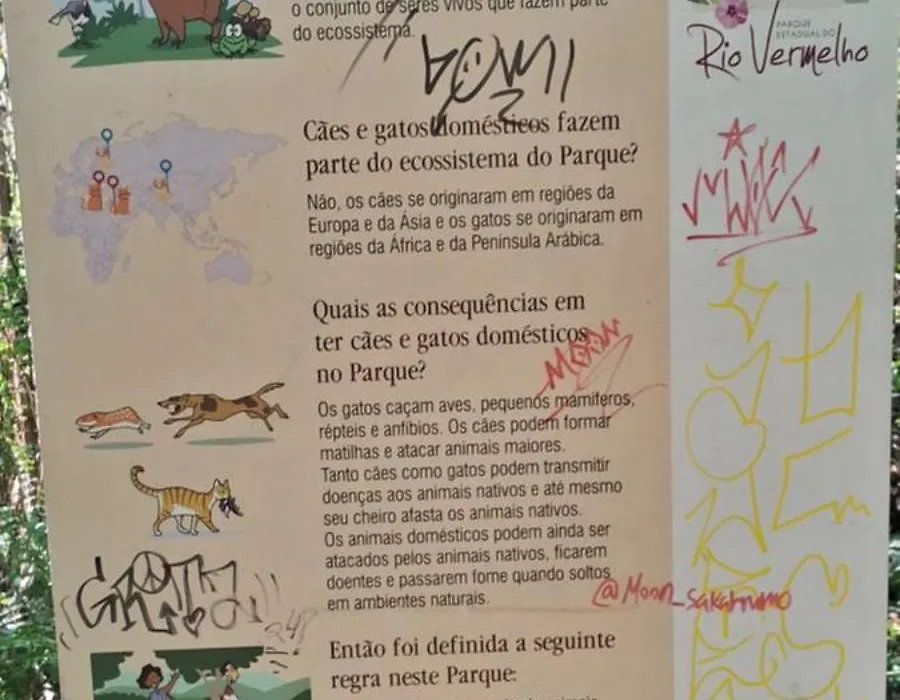 o conjunto de seres vivos que fazem parte
do ecossistema.
PARQUE
ESTADUAL DO
Rio Vermelho
Cães e gatos domésticos fazem
parte do ecossistema do Parque?
Não, os cães se originaram em regiões da
Europa e da Ásia e os gatos se originaram em
regiões da África e da Península Arábica.
Quais as consequências em
ter cães e gatos domésticos
no Parque?
MOON
Os gatos caçam aves, pequenos mamíferos,
répteis e anfíbios. Os cães podem formar
matilhas e atacar animais maiores.
Tanto cães como gatos podem transmitir
doenças aos animais nativos e até mesmo
seu cheiro afasta os animais nativos.
Os animais domésticos podem ainda ser
atacados pelos animais nativos, ficarem
doentes e passarem fome quando soltos
em ambientes naturais.
Então foi definida a seguinte
regra neste Parque: